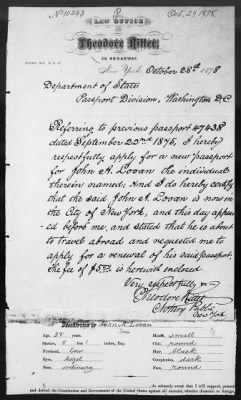 No 10243
Oct. 29 1878.
LAW OFFICE
OF
Theodore Ritter,
BROADWAY,
New York, October 28th 1878
Department of State
Passport Division, Washington D.C.
Referring to previous passport #47438
dated September 22nd 1875, I hereby
respectfully apply for a new passport
for John A. Lovan the individual
therein named; And I do hereby certify
that the said John A. Lovan is now in
the City of New York, and this day appear-
ed before me, and stated that he is about
to travel abroad and requested me to
apply for a renewal of his said passport.
The fee of $5.00 is herewith enclosed
Very respectfully
Theodore Ritter
Notary Public
New York
DESCRIPTION OF John A. Lovan
Age, 38 years. Mouth, small
Stature, 5 Eng. Chin, round
Forehead, low Hair, black
Eyes, hazel Complexion, dark
Nose, ordinary Face, round
do solemnly swear that I will support, protect
and defend the Constitution and Government of the United States against all enemies, whether domestic or foreign